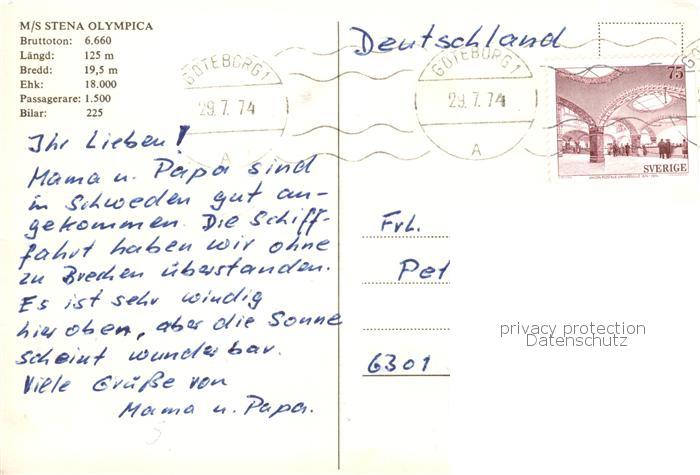 M/S STENA OLYMPICA
Bruttoton: 6.660
Längd: 125 m
Bredd: 19,5 m
Ehk: 18.000
Passagerare: 1.500
Bilar: 225
Ihr Lieben!
Mama u. Papa sind
in Schweden gut an-
gekommen. Die Schiff-
fahrt haben wir ohne
zu Brechen überstanden.
Es ist sehr windig
hier oben, aber die Sonne
scheint wunderbar.
Viele Grüße von
Mama u. Papa.
Deutschland
GÖTEBORG 1
29.7.74
A
GÖTEBORG 1
29.7.74
A
75
SVERIGE
Frl.
Pet
6301
privacy protection
Datenschutz